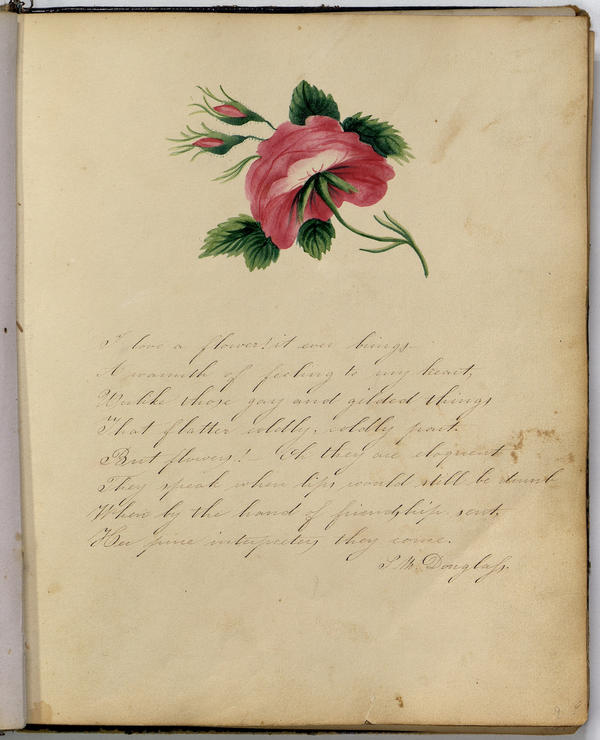 I love a flower! it ever brings
A warmth of feeling to my heart,
Unlike those gay and gilded things
That flatter coldly, coldly part.
But flowers! - Oh they are eloquent
They speak when lips would still be dumb
When by the hand of friendship sent,
Her pure interpreters they come.
S. M. Douglass.